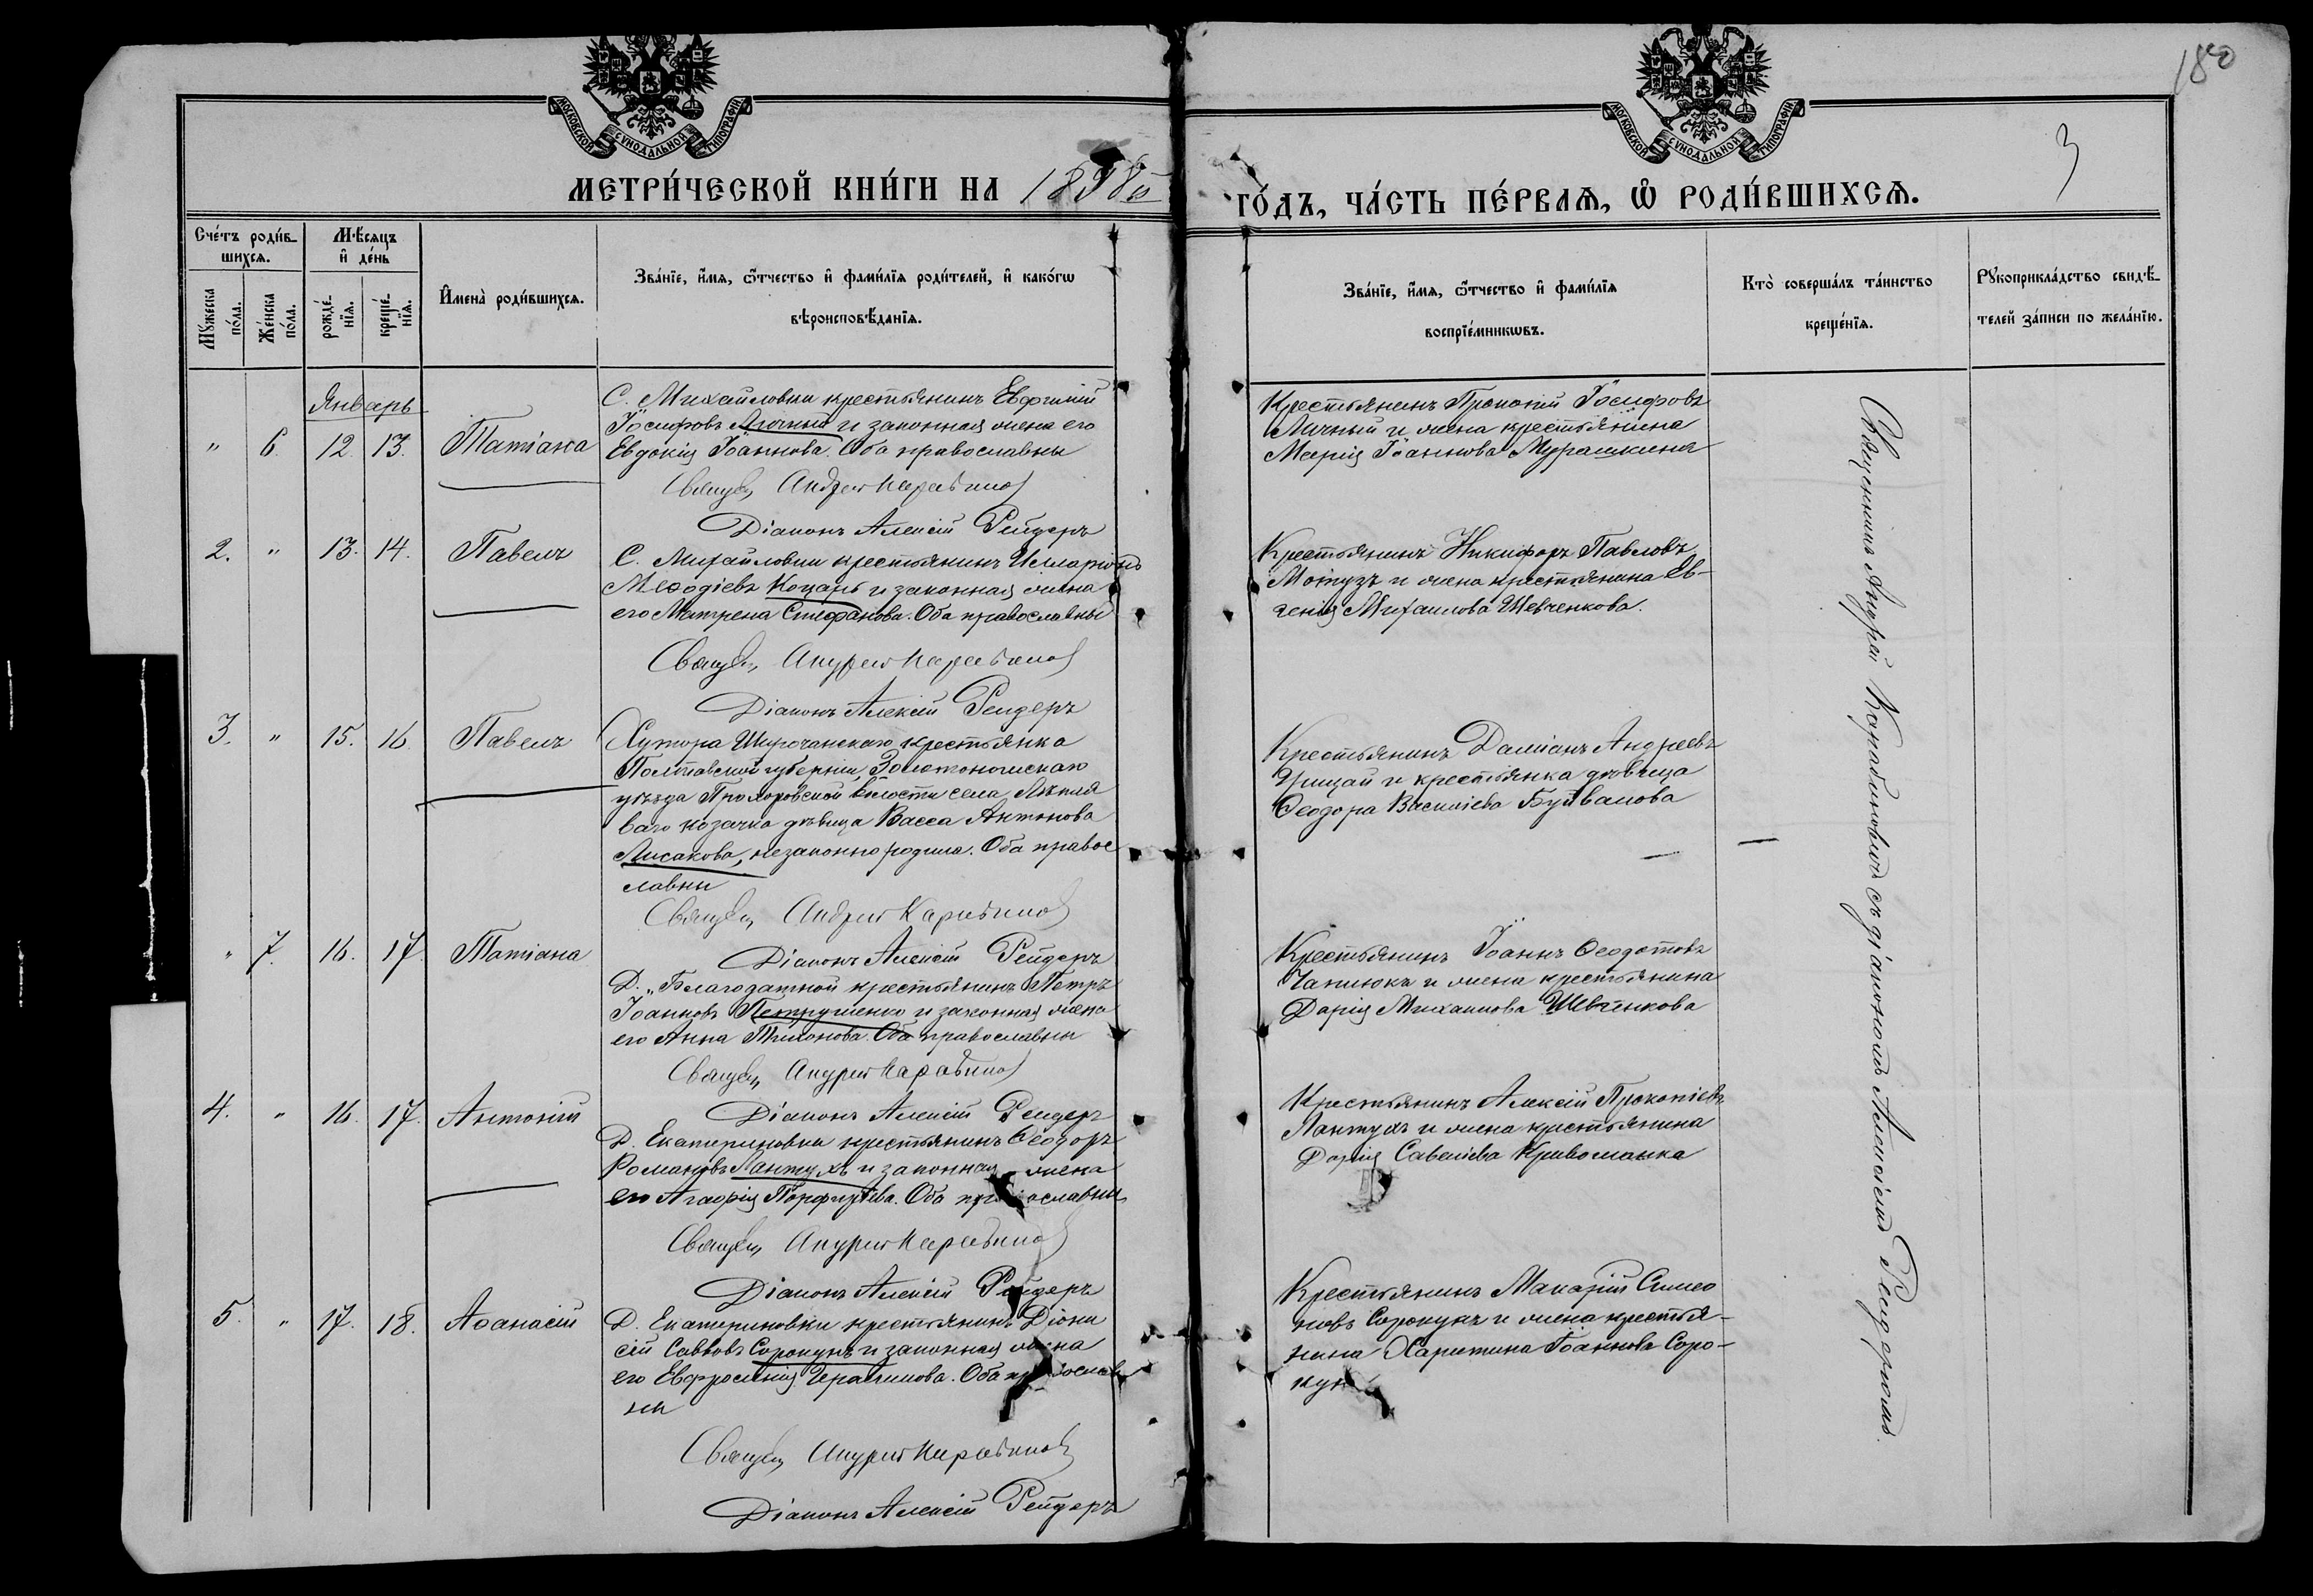 МОСКОВСКОЙ СѴНОДАЛЬНОЙ ТИПОГРАФІИ
МОСКОВСКОЙ СѴНОДАЛЬНОЙ ТИПОГРАФІИ
180
3
МЕТРИ́ЧЕСКОЙ КНИ́ГИ НА 1898й
ГО́ДЪ, ЧА́СТЬ ПЕ́РВАѦ, Ѡ РОДИ́ВШИХСѦ.
Сче́тъ роди́вшихсѧ.
Мꙋ́жеска по́ла.
Же́нска по́ла.
Мѣ́сѧцъ и҆ де́нь
рожде́нїѧ.
креще́нїѧ.
И҆мена̀ роди́вшихсѧ.
Зва́нїе, и҆́мѧ, ѻ҆́тчество и҆ фами́лїѧ роди́телей, и҆ како́гѡ
вѣроисповѣ́данїѧ.
Зва́нїе, и҆́мѧ, ѻ҆́тчество и҆ фами́лїѧ
воспрїе́мникѡвъ.
Кто̀ соверша́лъ та́инство
креще́нїѧ.
Рꙋкоприкла́дство свидѣ́телей за́писи по жела́нїю.
Январь
" 6. 12. 13. Татіана
С. Михайловки крестьянинъ Евфимій
Іосифовъ Лючный и законная жена его
Евдокія Іоаннова. Оба православны
Священ. Андрей Карабинов
Діаконъ Алексій Рейдеръ
Крестьянинъ Прокопій Іосифовъ
Лючный и жена крестьянина
Марія Іоаннова Мурашкина
2. " 13. 14. Павелъ
С. Михайловки крестьянинъ Илларіонъ
Меѳодіевъ Коцарь и законная жена
его Матрена Стефанова. Оба православны
Священ. Андрей Карабинов
Діаконъ Алексій Рейдеръ
Крестьянинъ Никифоръ Павловъ
Мотузъ и жена крестьянина Ев-
генія Михаилова Шевченкова.
3. " 15. 16. Павелъ
Хутора Широчанскаго крестьянка
Полтавской губерніи, Золотоношскаго
уѣзда Прохоровской волости села
ваго козачка дѣвица Васса Антонова
Лисакова, незаконно родила. Оба правос
лавны
Священ. Андрей Карабинов
Діаконъ Алексій Рейдеръ
Крестьянинъ Даміанъ Андреевъ
Грицай и крестьянка дѣвица
Ѳеодора Василіева Буйвалова
" 7. 16. 17. Татіана
Д. Благодатной крестьянинъ Петръ
Іоанновъ Петрушенко и законная жена
его Анна Тихонова. Оба православны
Священ. Андрей Карабинов
Діаконъ Алексій Рейдеръ
Крестьянинъ Іоаннъ Ѳеодотовъ
Чаплюкъ и жена крестьянина
Дарія Михаилова Шевченкова
4. " 16. 17. Антоній
Д. Екатериновки крестьянинъ Ѳеодоръ
Романовъ Лантухъ и законная жена
его Агафія Порфиріева. Оба православны
Священ. Андрей Карабинов
Діаконъ Алексій Рейдеръ
Крестьянинъ Алексій Прокопіевъ
Лантухъ и жена крестьянина
Дарія Савеліева Кривошапка
5. " 17. 18. Аѳанасій
Д. Екатериновки крестьянинъ Діони
сій Саввовъ Сорокунъ и законная жена
его Евфросинія Герасимова. Оба православ
ны
Священ. Андрей Карабинов
Діаконъ Алексій Рейдеръ
Крестьянинъ Макарій Симео
новъ Сорокунъ и жена крестья-
нина Харитина Іоаннова Соро-
кун
Священникъ Андрей Карабиновъ съ діакономъ Алексіемъ Рейдеромъ.